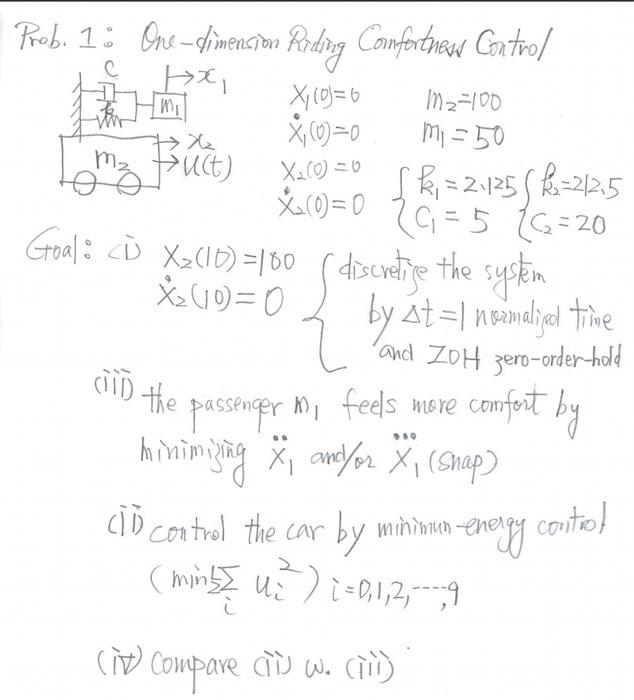 Prob. 1: One-dimension Riding Comfortness Control
C
k
m₁
x₁
m₂
x₂
u(t)
X₁(0)=0
Ẋ₁(0)=0
X₂(0)=0
Ẋ₂(0)=0
m₂=100
m₁=50
{k₁=2.125
C₁=5
{k₂=212.5
C₂=20
Goal: (i) X₂(10)=100
Ẋ₂(10)=0
{discretize the system
by Δt=1 normalized time
and ZOH zero-order-hold
(iii) the passenger m₁ feels more comfort by
minimizing Ẍ₁ and/or X⃛₁ (snap)
(ii) control the car by minimun-energy control
(min ½∑ᵢ uᵢ²) i=0,1,2,----,9
(iv) compare (ii) w. (iii)